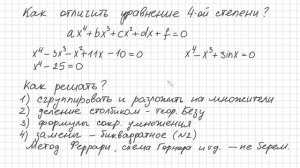 Как отличить уравнение 4-ой степени?
ax⁴+bx³+cx²+dx+f=0
x⁴-3x³-x²+11x-10=0 x⁴-x³+3sinx=0
x⁴-25=0
Как решать?
1) сгруппировать и разложить на множители
2) деление столбиком - теор. Безу
3) формулы сокр. умножения
4) замены - биквадратное (№2)
Метод Феррари, схема Горнера и т.д. — не берем.